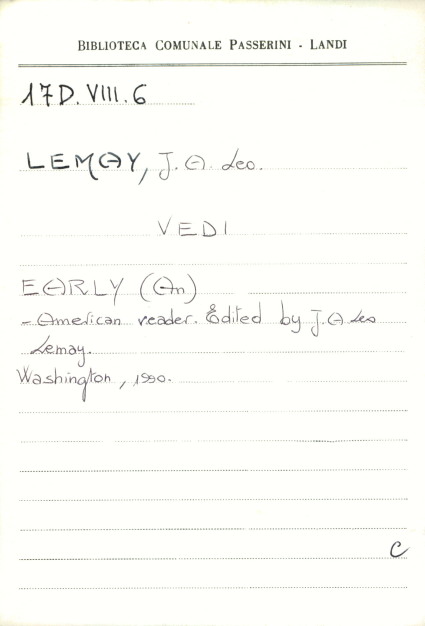 BIBLIOTECA COMUNALE PASSERINI - LANDI
17D.VIII.6
LEMAY, J. A. Leo.
VEDI
EARLY (An)
- American reader. Edited by J. A Leo
Lemay.
Washington, 1990.
C